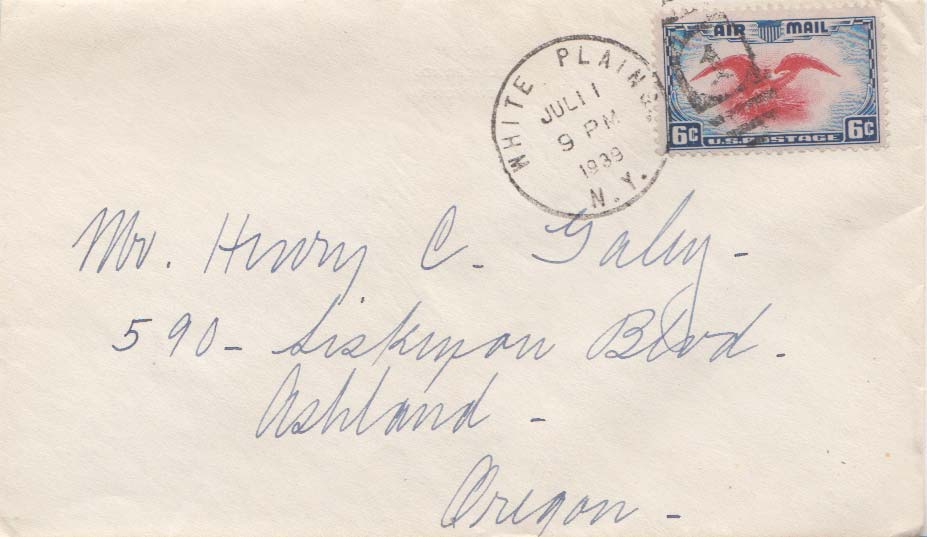 AIR MAIL
6¢ U.S. POSTAGE 6¢
WHITE PLAINS
JUL 11
9 PM
1939
N.Y.
Mr. Henry C. Galey -
590 - Siskiyou Blvd.
Ashland -
Oregon -